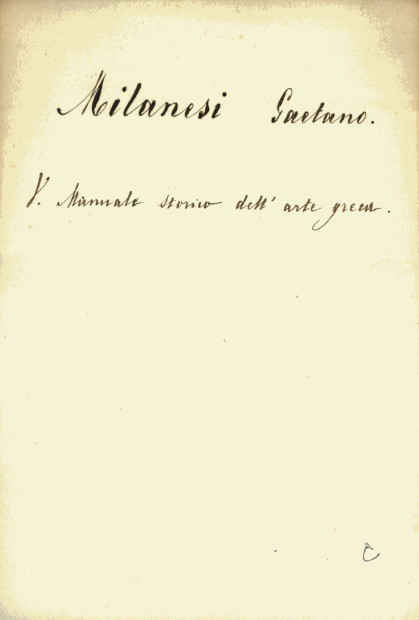 Milanesi Gaetano.
V. Manuale storico dell' arte greca.
C